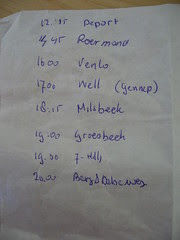 12.45 Depart
14.45 Roermond
16.00 Venlo
17.00 Well (Gennep)
18.15 Milsbeek
19.00 Groesbeek
19.30 7-Hills
20.00